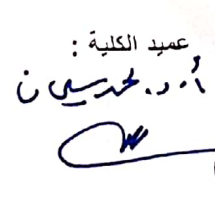 عميد الكلية :
أ.د. محمد سليمان